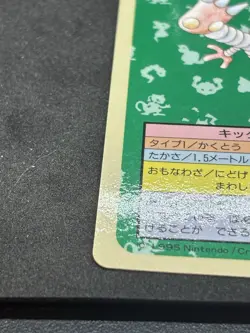 キック
タイプ/かくとう
たかさ/1.5メートル
おもなわざ/にどげ
まわし
けることが できる
1995 Nintendo/Cr